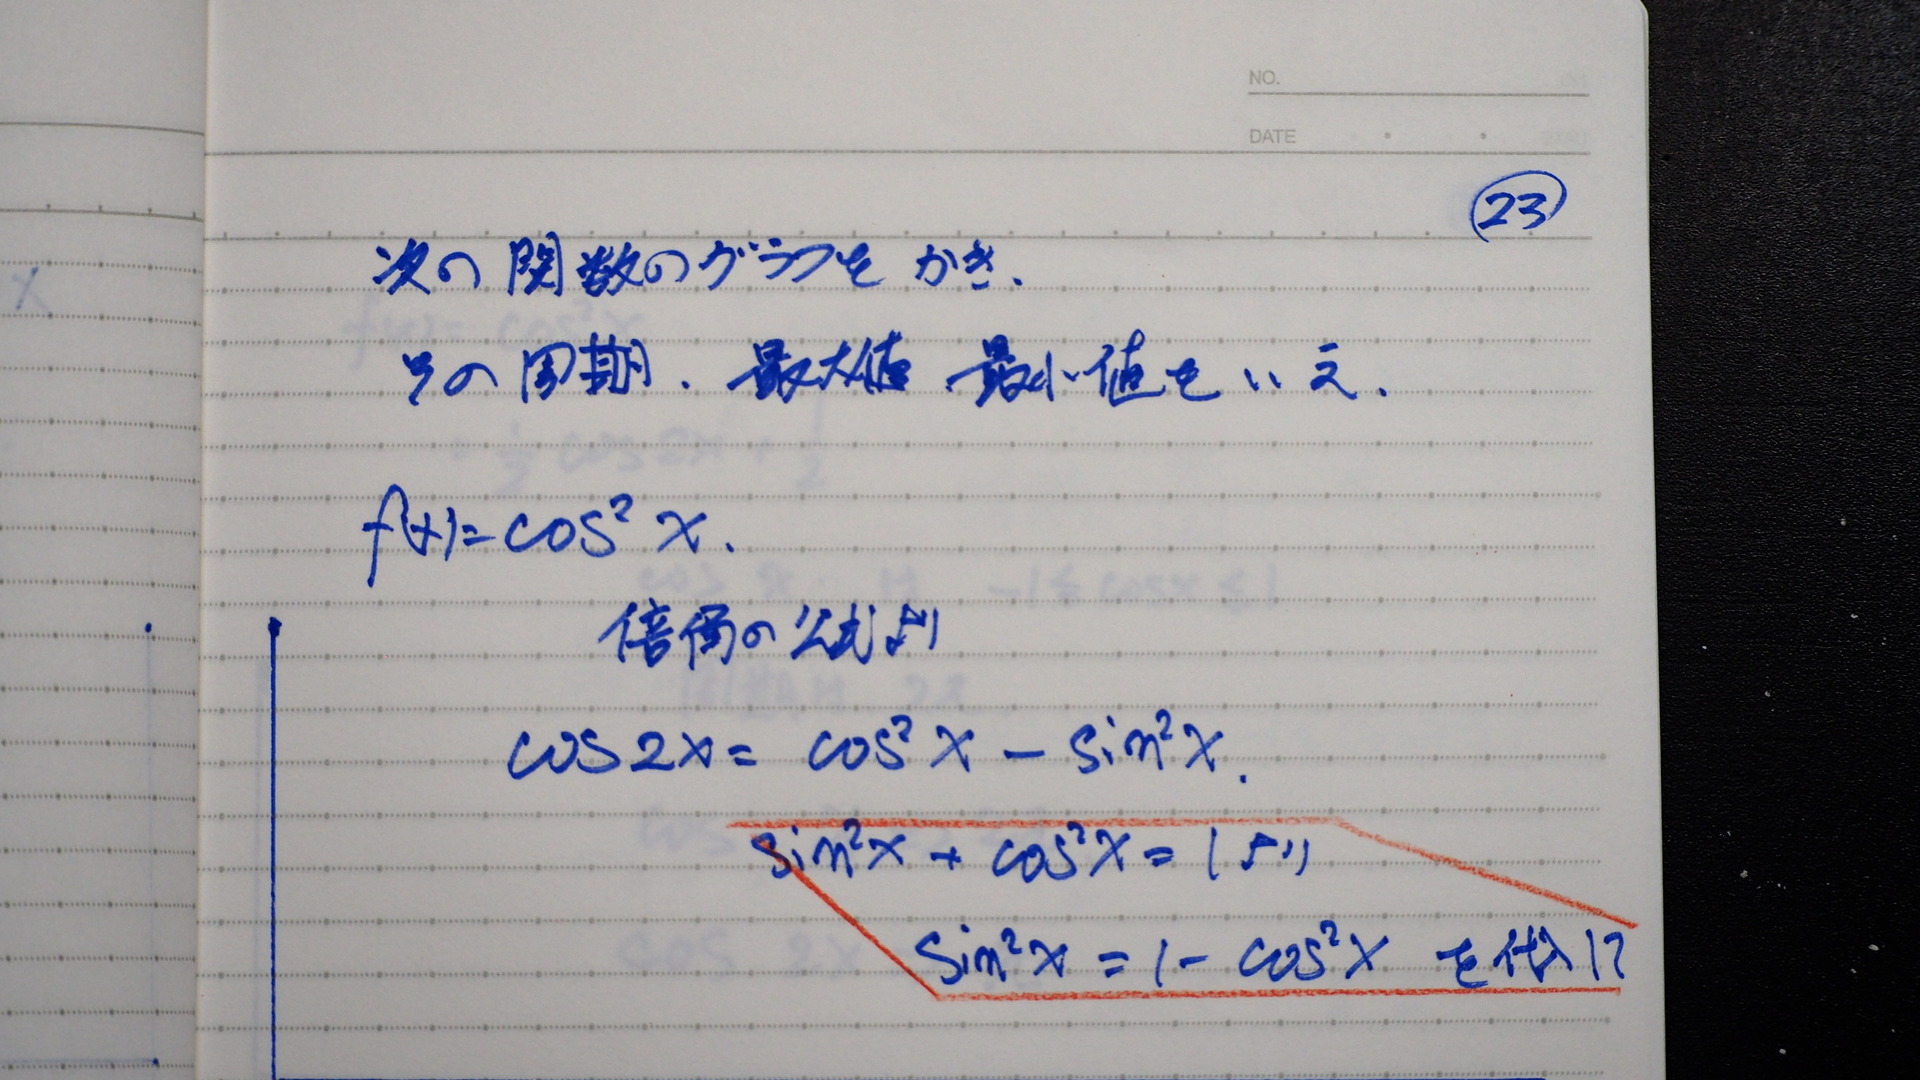 NO.
DATE
23
次の関数のグラフをかき.
その周期. 最大値 最小値をいえ.
f(x)=cos²x.
倍角の公式より
cos2x= cos²x - sin²x.
sin²x + cos²x = 1 より
sin²x = 1 - cos²x を代入
x